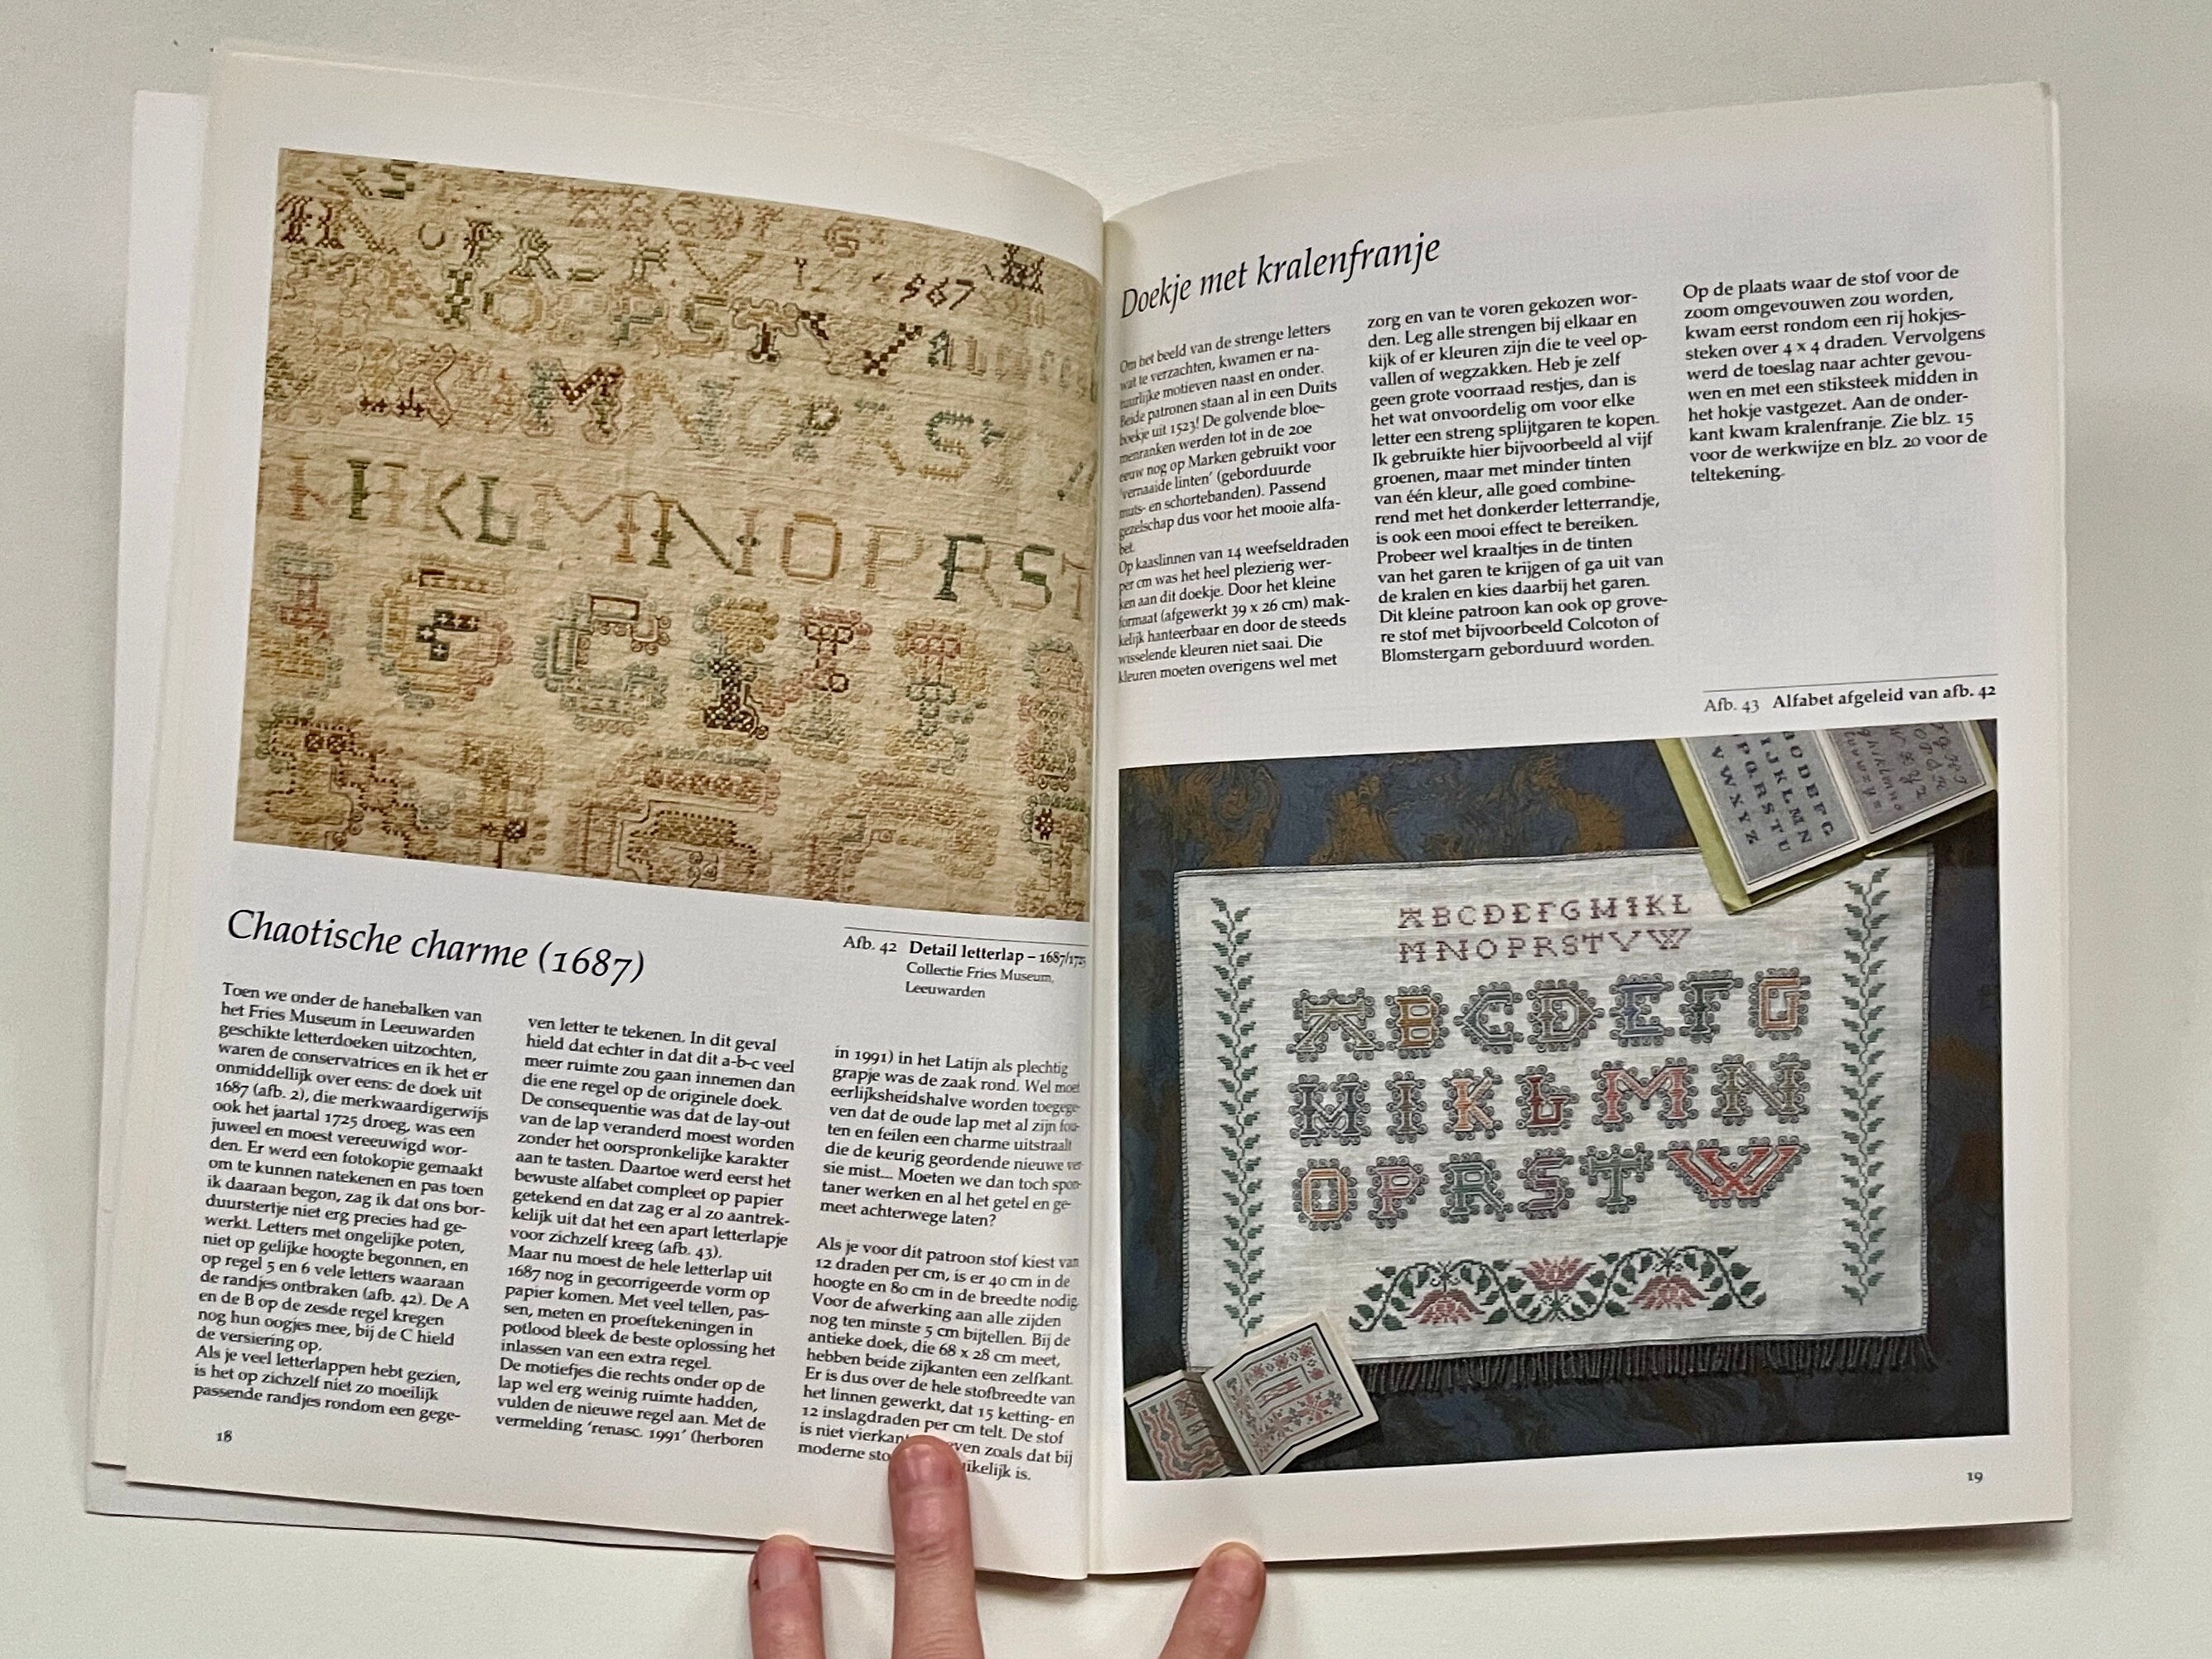 Chaotische charme (1687)
Afb. 42 Detail letterlap – 1687/1725
Collectie Fries Museum,
Leeuwarden
Toen we onder de hanebalken van
het Fries Museum in Leeuwarden
geschikte letterdoeken uitzochten,
waren de conservatrices en ik het er
onmiddellijk over eens: de doek uit
1687 (afb. 2), die merkwaardigerwijs
ook het jaartal 1725 droeg, was een
juweel en moest vereeuwigd wor-
den. Er werd een fotokopie gemaakt
om te kunnen natekenen en pas toen
ik daaraan begon, zag ik dat ons bor-
duurstertje niet erg precies had ge-
werkt. Letters met ongelijke poten,
niet op gelijke hoogte begonnen, en
op regel 5 en 6 vele letters waaraan
de randjes ontbraken (afb. 42). De A
en de B op de zesde regel kregen
nog hun oogjes mee, bij de C hield
de versiering op.
Als je veel letterlappen hebt gezien,
is het op zichzelf niet zo moeilijk
passende randjes rondom een gege-
ven letter te tekenen. In dit geval
hield dat echter in dat dit a-b-c veel
meer ruimte zou gaan innemen dan
die ene regel op de originele doek.
De consequentie was dat de lay-out
van de lap veranderd moest worden
zonder het oorspronkelijke karakter
aan te tasten. Daartoe werd eerst het
bewuste alfabet compleet op papier
getekend en dat zag er al zo aantrek-
kelijk uit dat het een apart letterlapje
voor zichzelf kreeg (afb. 43).
Maar nu moest de hele letterlap uit
1687 nog in gecorrigeerde vorm op
papier komen. Met veel tellen, pas-
sen, meten en proeftekeningen in
potlood bleek de beste oplossing het
inlassen van een extra regel.
De motiefjes die rechts onder op de
lap wel erg weinig ruimte hadden,
vulden de nieuwe regel aan. Met de
vermelding 'renasc. 1991' (herboren
in 1991) in het Latijn als plechtig
grapje was de zaak rond. Wel moet
eerlijksheidshalve worden toegege-
ven dat de oude lap met al zijn fou-
ten en feilen een charme uitstraalt
die de keurig geordende nieuwe ver-
sie mist... Moeten we dan toch spon-
taner werken en al het getel en ge-
meet achterwege laten?
Als je voor dit patroon stof kiest van
12 draden per cm, is er 40 cm in de
hoogte en 80 cm in de breedte nodig.
Voor de afwerking aan alle zijden
nog ten minste 5 cm bijtellen. Bij de
antieke doek, die 68 x 28 cm meet,
hebben beide zijkanten een zelfkant.
Er is dus over de hele stofbreedte van
het linnen gewerkt, dat 15 ketting- en
12 inslagdraden per cm telt. De stof
is niet zoals dat bij
moderne is.
18
Doekje met kralenfranje
Om het beeld van de strenge letters
wat te verzachten, kwamen er na-
tuurlijke motieven naast en onder.
Beide patronen staan al in een Duits
boekje uit 1523! De golvende bloe-
menranken werden tot in de 20e
eeuw nog op Marken gebruikt voor
'vernaaide linten' (geborduurde
muts- en schortebanden). Passend
gezelschap dus voor het mooie alfa-
bet.
Op kaaslinnen van 14 weefseldraden
per cm was het heel plezierig wer-
ken aan dit doekje. Door het kleine
formaat (afgewerkt 39 x 26 cm) mak-
kelijk hanteerbaar en door de steeds
wisselende kleuren niet saai. Die
kleuren moeten overigens wel met
zorg en van te voren gekozen wor-
den. Leg alle strengen bij elkaar en
kijk of er kleuren zijn die te veel op-
vallen of wegzakken. Heb je zelf
geen grote voorraad restjes, dan is
het wat onvoordelig om voor elke
letter een streng splijtgaren te kopen.
Ik gebruikte hier bijvoorbeeld al vijf
groenen, maar met minder tinten
van één kleur, alle goed combine-
rend met het donkerder letterrandje,
is ook een mooi effect te bereiken.
Probeer wel kraaltjes in de tinten
van het garen te krijgen of ga uit van
de kralen en kies daarbij het garen.
Dit kleine patroon kan ook op grove-
re stof met bijvoorbeeld Colcoton of
Blomstergarn geborduurd worden.
Op de plaats waar de stof voor de
zoom omgevouwen zou worden,
kwam eerst rondom een rij hokjes-
steken over 4 x 4 draden. Vervolgens
werd de toeslag naar achter gevou-
wen en met een stiksteek midden in
het hokje vastgezet. Aan de onder-
kant kwam kralenfranje. Zie blz. 15
voor de werkwijze en blz. 20 voor de
teltekening.
Afb. 43 Alfabet afgeleid van afb. 42
ABCDEFGHIKL
MNOPRSTVW
ABCDEFG
HIKLMN
OPRSTW
19